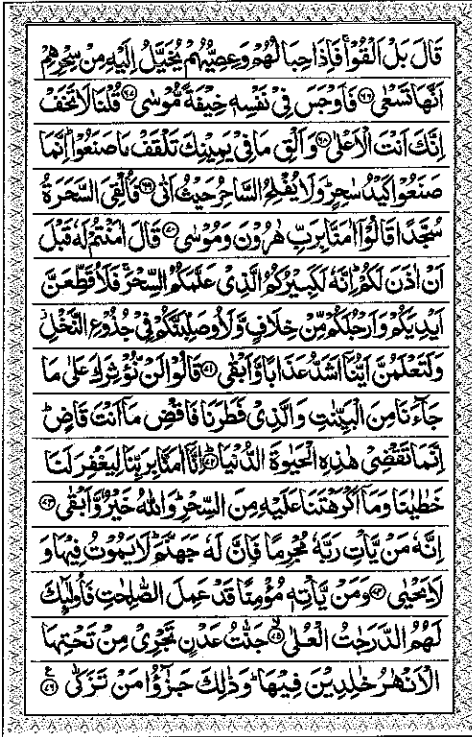 قَالَ بَلْ اَلْقُوْا ۚ فَاِذَا حِبَالُهُمْ وَعِصِیُّهُمْ یُخَیَّلُ اِلَیْهِ مِنْ سِحْرِهِمْ
اَنَّهَا تَسْعٰی ﴿۶۶﴾ فَاَوْجَسَ فِیْ نَفْسِهٖ خِیْفَةً مُّوْسٰی ﴿۶۷﴾ قُلْنَا لَا تَخَفْ
اِنَّكَ اَنْتَ الْاَعْلٰی ﴿۶۸﴾ وَاَلْقِ مَا فِیْ یَمِیْنِكَ تَلْقَفْ مَا صَنَعُوْا ؕ اِنَّمَا
صَنَعُوْا كَیْدُ سٰحِرٍ ؕ وَلَا یُفْلِحُ السَّاحِرُ حَیْثُ اَتٰی ﴿۶۹﴾ فَاُلْقِیَ السَّحَرَةُ
سُجَّدًا قَالُوْۤا اٰمَنَّا بِرَبِّ هٰرُوْنَ وَمُوْسٰی ﴿۷۰﴾ قَالَ اٰمَنْتُمْ لَهٗ قَبْلَ
اَنْ اٰذَنَ لَكُمْ ؕ اِنَّهٗ لَكَبِیْرُكُمُ الَّذِیْ عَلَّمَكُمُ السِّحْرَ ۚ فَلَاُقَطِّعَنَّ
اَیْدِیَكُمْ وَاَرْجُلَكُمْ مِّنْ خِلَافٍ وَّلَاُوصَلِّبَنَّكُمْ فِیْ جُذُوْعِ النَّخْلِ
وَلَتَعْلَمُنَّ اَیُّنَاۤ اَشَدُّ عَذَابًا وَّاَبْقٰی ﴿۷۱﴾ قَالُوْا لَنْ نُّؤْثِرَكَ عَلٰی مَا
جَآءَنَا مِنَ الْبَیِّنٰتِ وَالَّذِیْ فَطَرَنَا فَاقْضِ مَاۤ اَنْتَ قَاضٍ ؕ
اِنَّمَا تَقْضِیْ هٰذِهِ الْحَیٰوةَ الدُّنْیَا ﴿۷۲﴾ اِنَّاۤ اٰمَنَّا بِرَبِّنَا لِیَغْفِرَ لَنَا
خَطٰیٰنَا وَمَاۤ اَكْرَهْتَنَا عَلَیْهِ مِنَ السِّحْرِ ؕ وَاللّٰهُ خَیْرٌ وَّاَبْقٰی ﴿۷۳﴾
اِنَّهٗ مَنْ یَّاْتِ رَبَّهٗ مُجْرِمًا فَاِنَّ لَهٗ جَهَنَّمَ ؕ لَا یَمُوْتُ فِیْهَا وَ
لَا یَحْیٰی ﴿۷۴﴾ وَمَنْ یَّاْتِهٖ مُؤْمِنًا قَدْ عَمِلَ الصّٰلِحٰتِ فَاُولٰٓئِكَ
لَهُمُ الدَّرَجٰتُ الْعُلٰی ﴿۷۵﴾ جَنّٰتُ عَدْنٍ تَجْرِیْ مِنْ تَحْتِهَا
الْاَنْهٰرُ خٰلِدِیْنَ فِیْهَا ؕ وَذٰلِكَ جَزٰٓؤُا مَنْ تَزَكّٰی ﴿۷۶﴾ ع